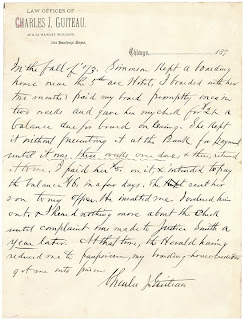 LAW OFFICES OF
CHARLES J. GUITEAU,
Chicago, 187
In the fall of '73. Simonson kept a boarding
home near the 5th ave Hotel, I boarded with her
two months paid my board promptly once in
two weeks and gave her my check for
balance due for board on leaving. She kept
it without presenting it at the Bank for payment
until it was three weeks one day, & then, returned
it to me. I paid her on it, & intended to pay
the balance in a few days. She sent her
son to my office. He insulted me. I ordered him
out, & I heard nothing more about the check
until complaint was made to Justice Smith a
year later. At that time, the Herald having
reduced me to pauperism, my boarding-house creditors
got me into prison
Charles J. Guiteau